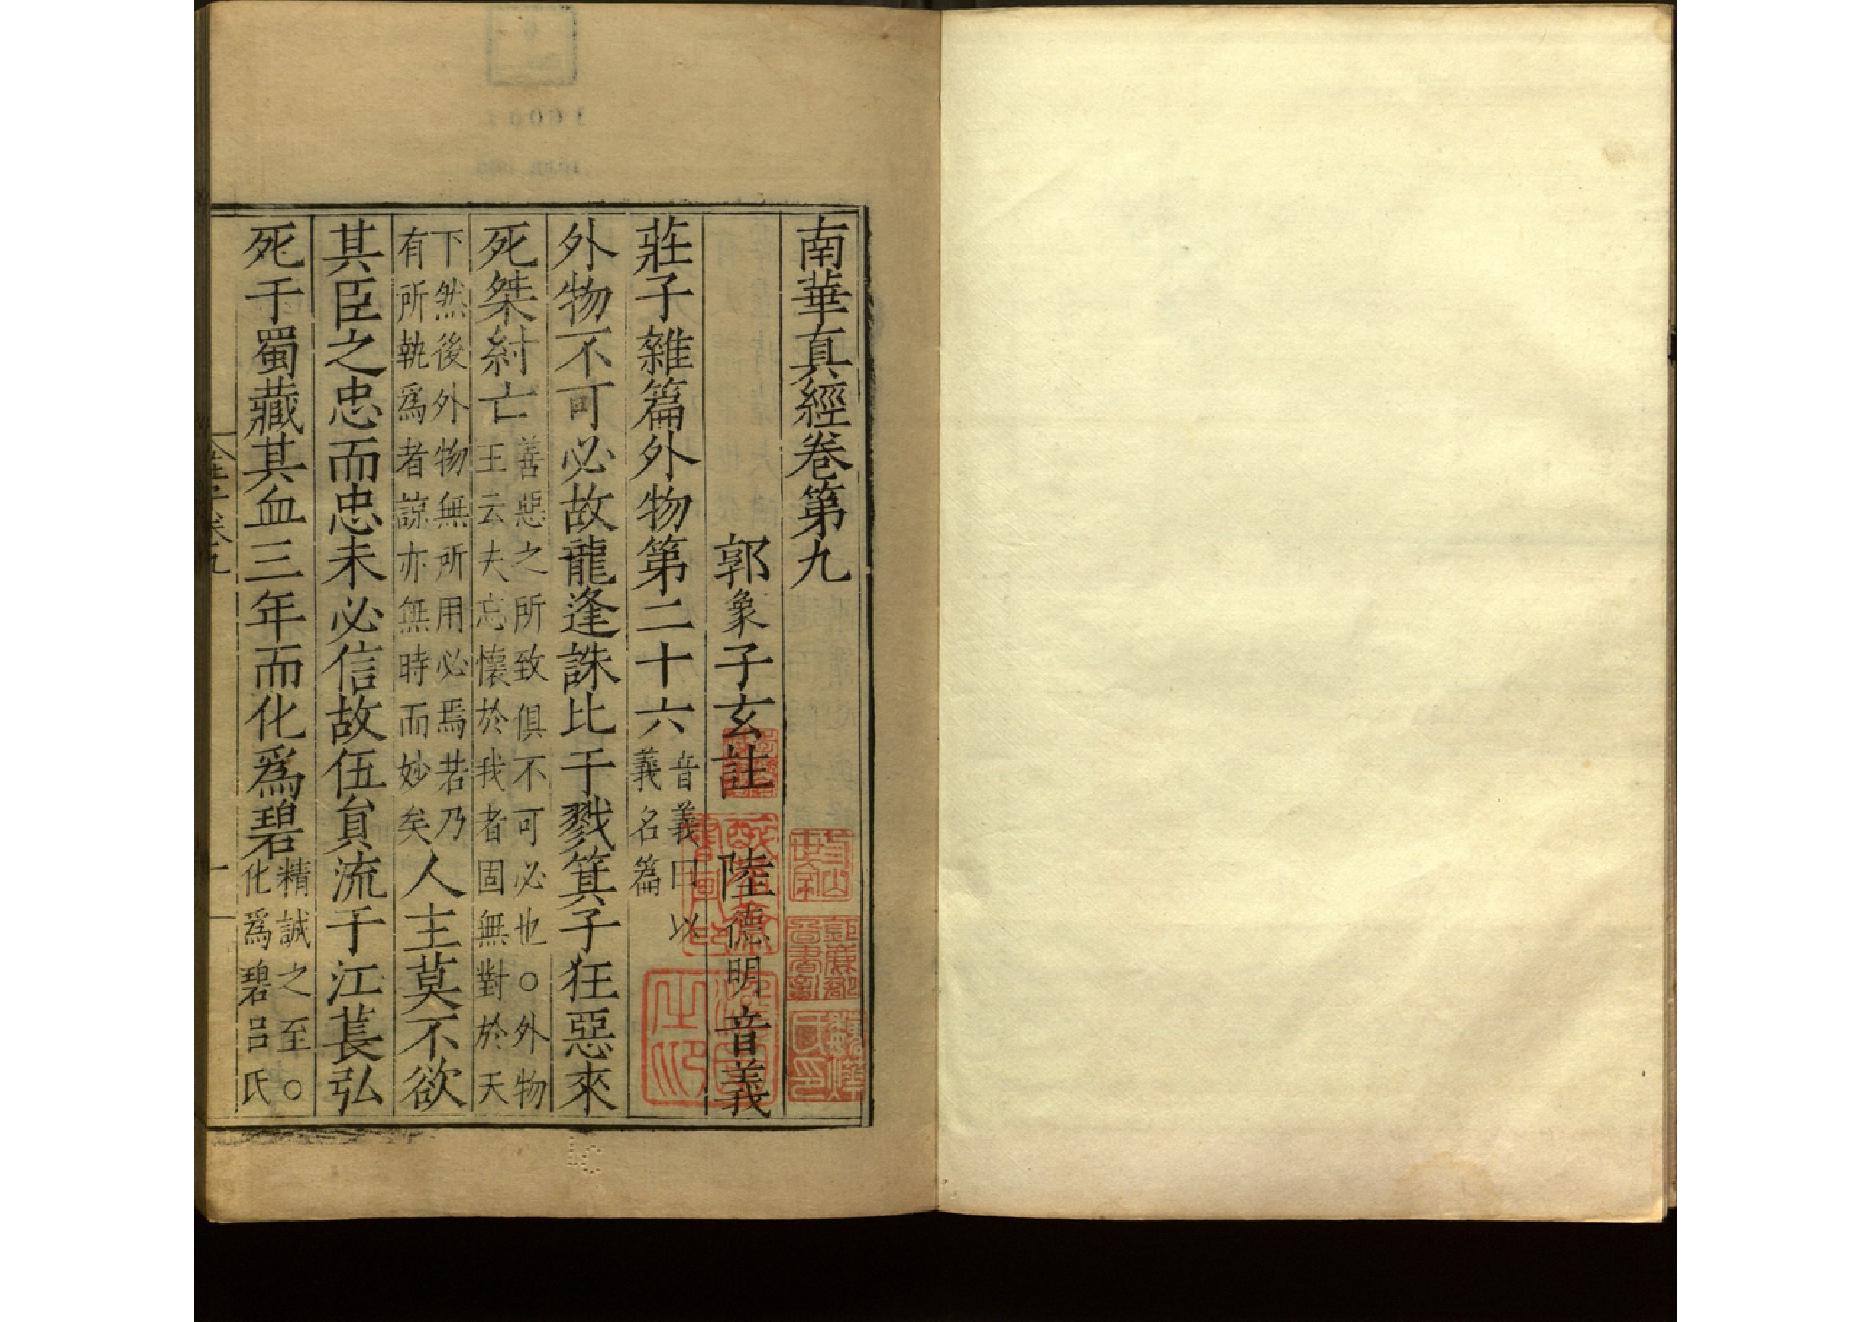 南華真經卷第九
郭象子玄註 陸德明音義
莊子雜篇外物第二十六音義曰以義名篇
外物不可必故龍逢誅比干戮箕子狂惡來
死桀紂亡善惡之所致俱不可必也○外物王云夫忘懷於我者固無對於天
下然後外物無所用必焉若乃有所執爲者諒亦無時而妙矣人主莫不欲
其臣之忠而忠未必信故伍員流于江萇弘
死于蜀藏其血三年而化爲碧精誠之至○化爲碧呂氏